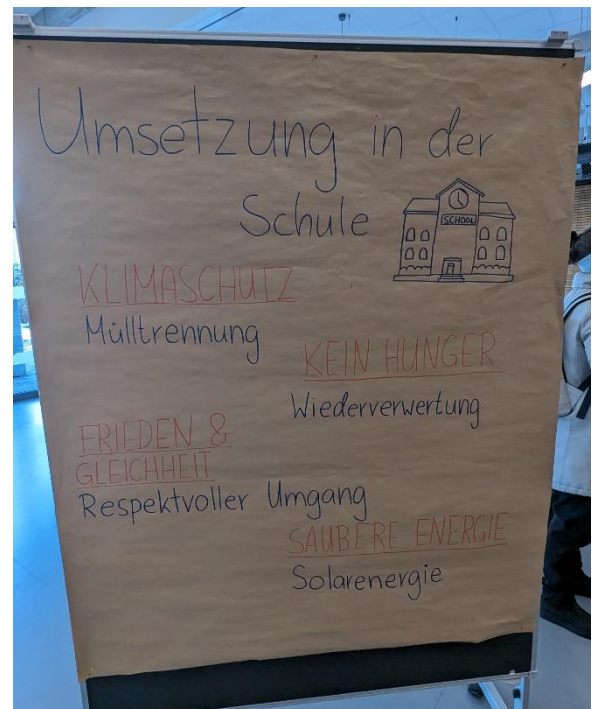 Umsetzung in der
Schule
SCHOOL
KLIMASCHUTZ
Mülltrennung
KEIN HUNGER
Wiederverwertung
FRIEDEN &
GLEICHHEIT
Respektvoller Umgang
SAUBERE ENERGIE
Solarenergie